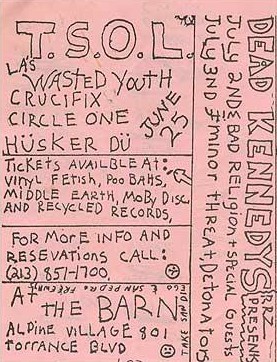 T.S.O.L.
LA'S
WASTED YOUTH
CRUCIFIX
CIRCLE ONE
HÜSKER DÜ
JUNE
25
TICKETS AVAILBLE AT:
VINYL FETISH, POO BAHS,
MIDDLE EARTH, MOBY DISC
AND RECYCLED RECORDS,
FOR MORE INFO AND
RESEVATIONS CALL:
(213) 851-1700.
AT
THE BARN
ALPINE VILLAGE 801
TORRANCE BLVD
DEAD KENNEDYS
JULY 2ND & BAD RELIGION + SPECIAL GUEST
JULY 3ND & MINOR THREAT DETONATOR